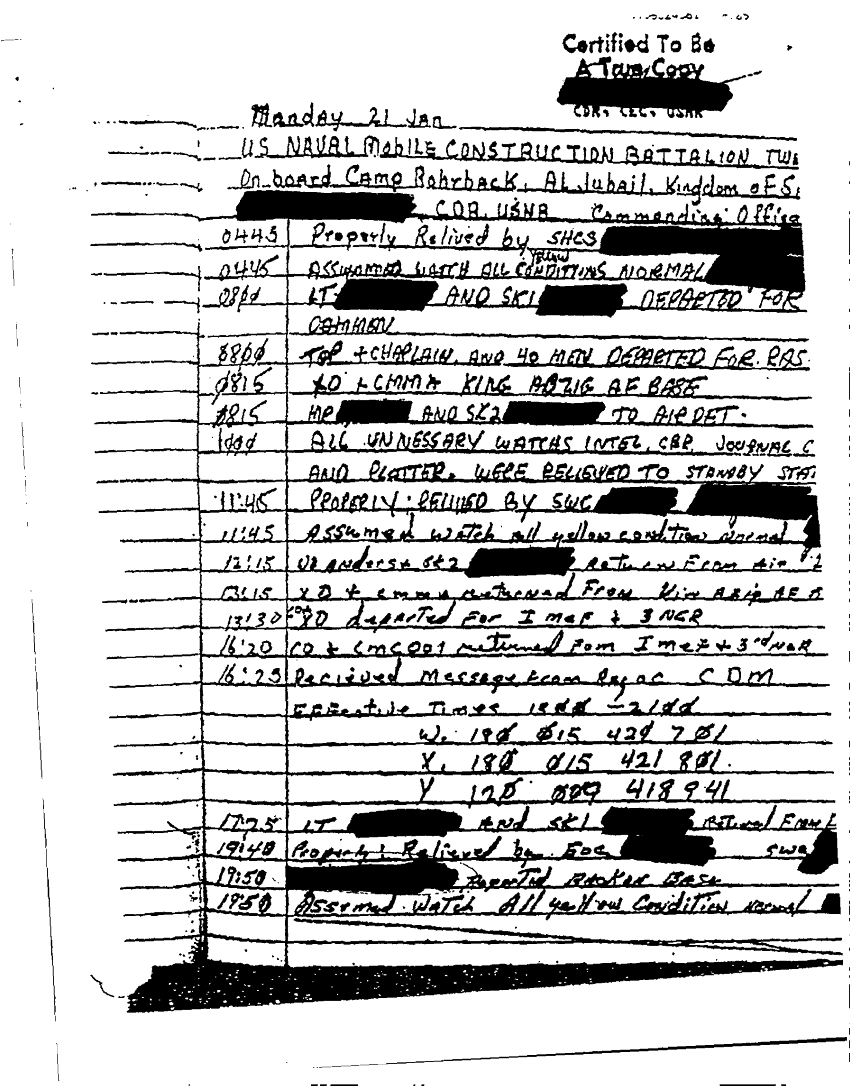 Certified To Be
A True Copy
CDR, CEC, USNR
Monday 21 Jan
US NAVAL MOBILE CONSTRUCTION BATTALION TWE
On board Camp Rohrback, Al Jubail, Kingdom of S
CDR, USNR Commanding Office
0445 Properly Relived by SHCS
yellow
0445 ASSUMMED WATCH ALL CONDITIONS NORMAL
0800 LT AND SK1 DEPARTED FOR
DAMMAN
0800 TOP + CHAPLAIN, AND 40 MEN DEPARTED FOR RAS
0815 XO + CMMA KING ABZIG AF BASE
0815 MR AND SK2 TO AIR DET.
1000 ALL UNNESSARY WATCHS INTEL, CBR, JOURNAL C
AND PLOTTER. WERE RELIEVED TO STANDBY STAT
11:45 PROPERLY RELIVED BY SWC
11:45 Assumed watch all yellow condition normal
12:15 SK2 Return From Air
13:15 XO + cmma returned From Kin Abzip AF B
13:30 XO departed For I mef + 3 NCR
16:20 CO + CMC returned Fom I mef + 3rd NCR
16:25 Recieved Message From CDM
Effective Times 1800 - 2100
W. 180 015 420 701
X. 180 015 421 801.
Y 120 009 418 941
17:25 LT And SK1 Returned From
19:40 Properly Relieved by EOC SWC
19:50 Reported Base
19:50 Assumed Watch All yellow Condition normal